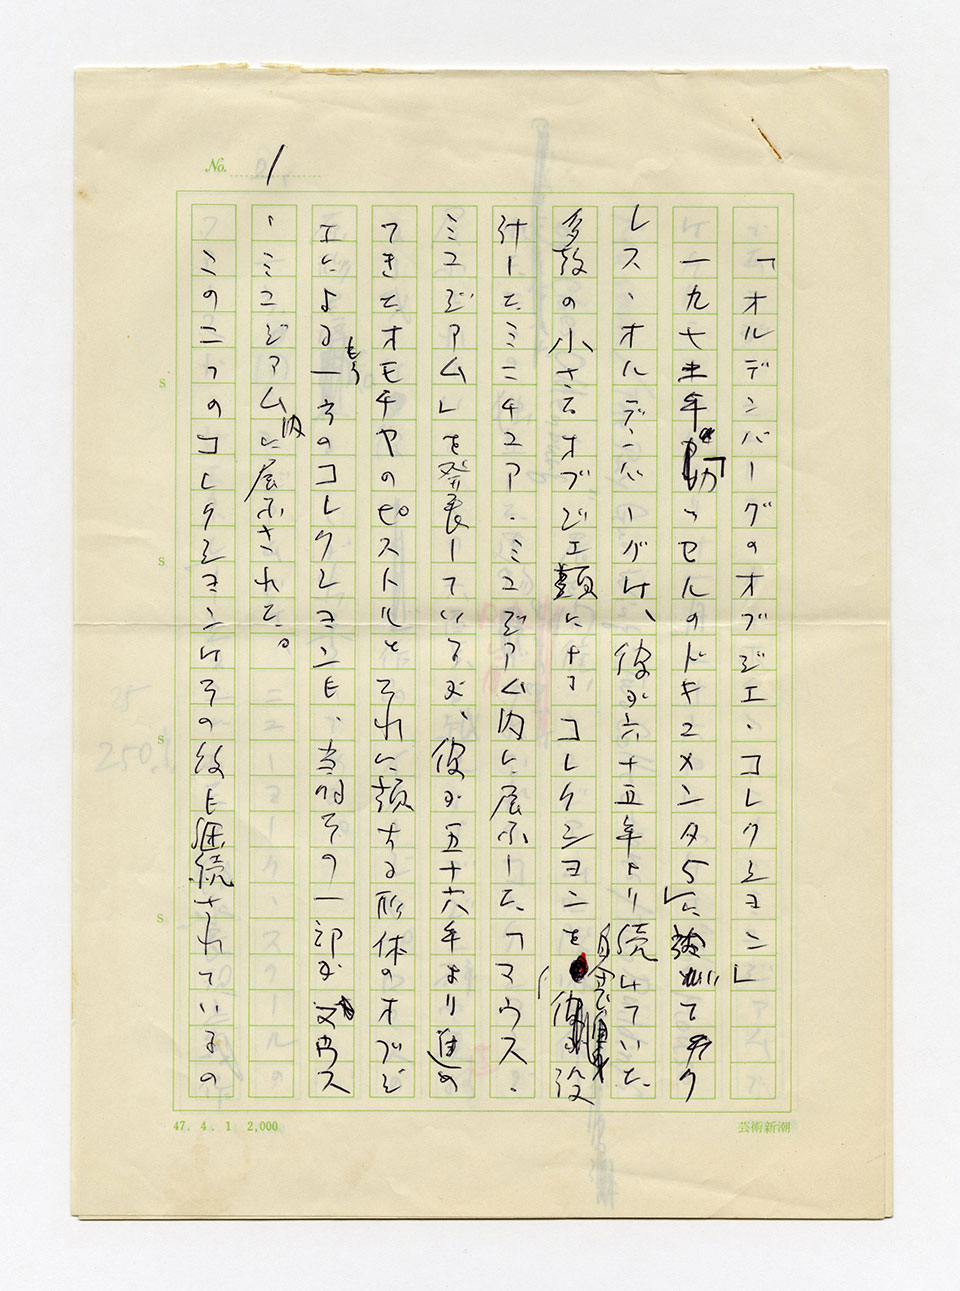 No. 1
「オルデンバーグのオブジエ・コレクシヨン」
一九七二年カッセルのドキュメンタ5に於いてクレ
ス・オルデンバーグは、彼が六十五年より続けていた
多数の小さなオブジエ類によるコレクシヨンを自ら設
計したミニチユア・ミユジアム内に展示した。「マウス・
ミユジアム」を発表しているが、彼が五十六年より進め
てきたオモチヤのピストルとそれに類する形体のオブジ
エによるもう一方のコレクシヨンも、当初その一部がマウス
・ミユジアム内に展示された。
このニつのコレクシヨンはその後も継続されているの
S
S
S
S
47. 4. 1 2,000
芸術新潮
25
250.